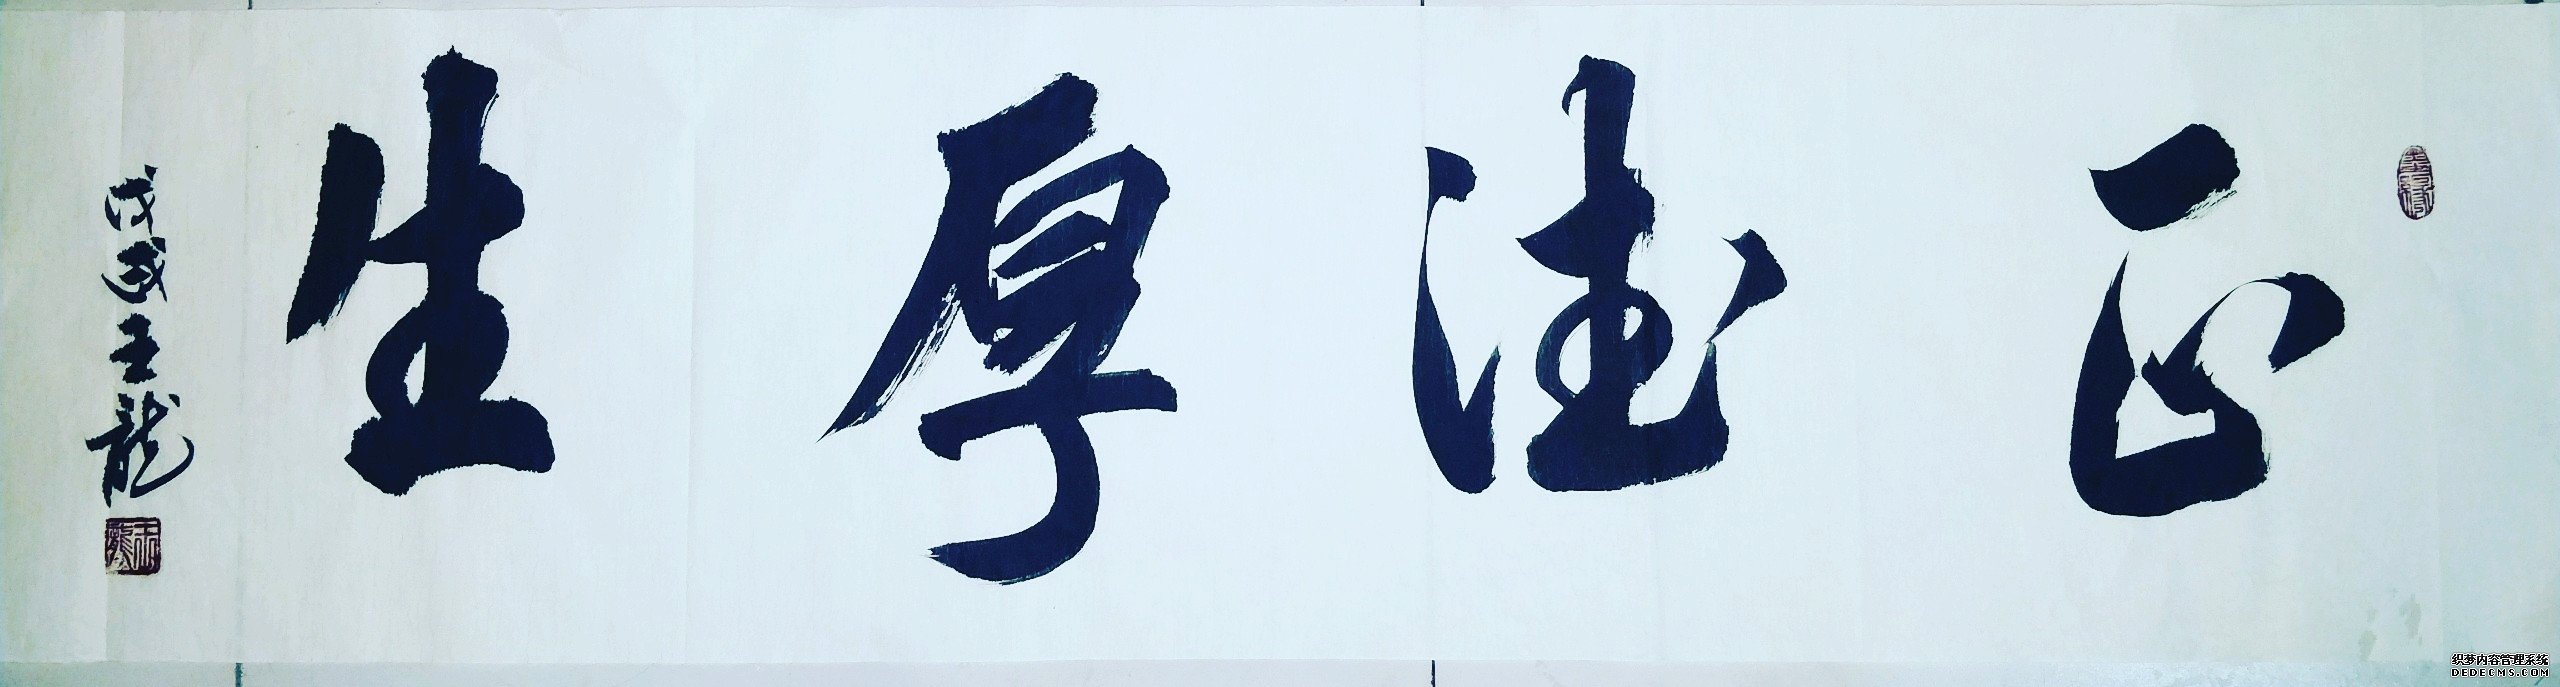 正德厚生
戊戌王龙
王龙
织梦内容管理系统
DEDECMS.COM